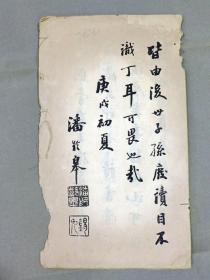 皆由後世子孫廢讀目不
識丁耳可畏也哉
庚戌初夏
潘齡皋